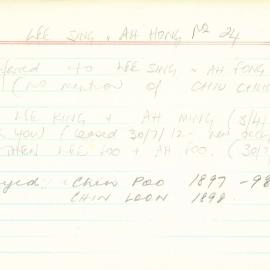 LEE SING & AH HONG No 24
ferred to LEE SING & AH FONG
(no mention of CHIU CHING
LEE KING & AH MING (8/4/
YOU (leased 30/7/12 - new
THEN LEE LOO & AH LOO. (30/7
yed: Chew Poo 1897-98
CHIN LOON 1898.